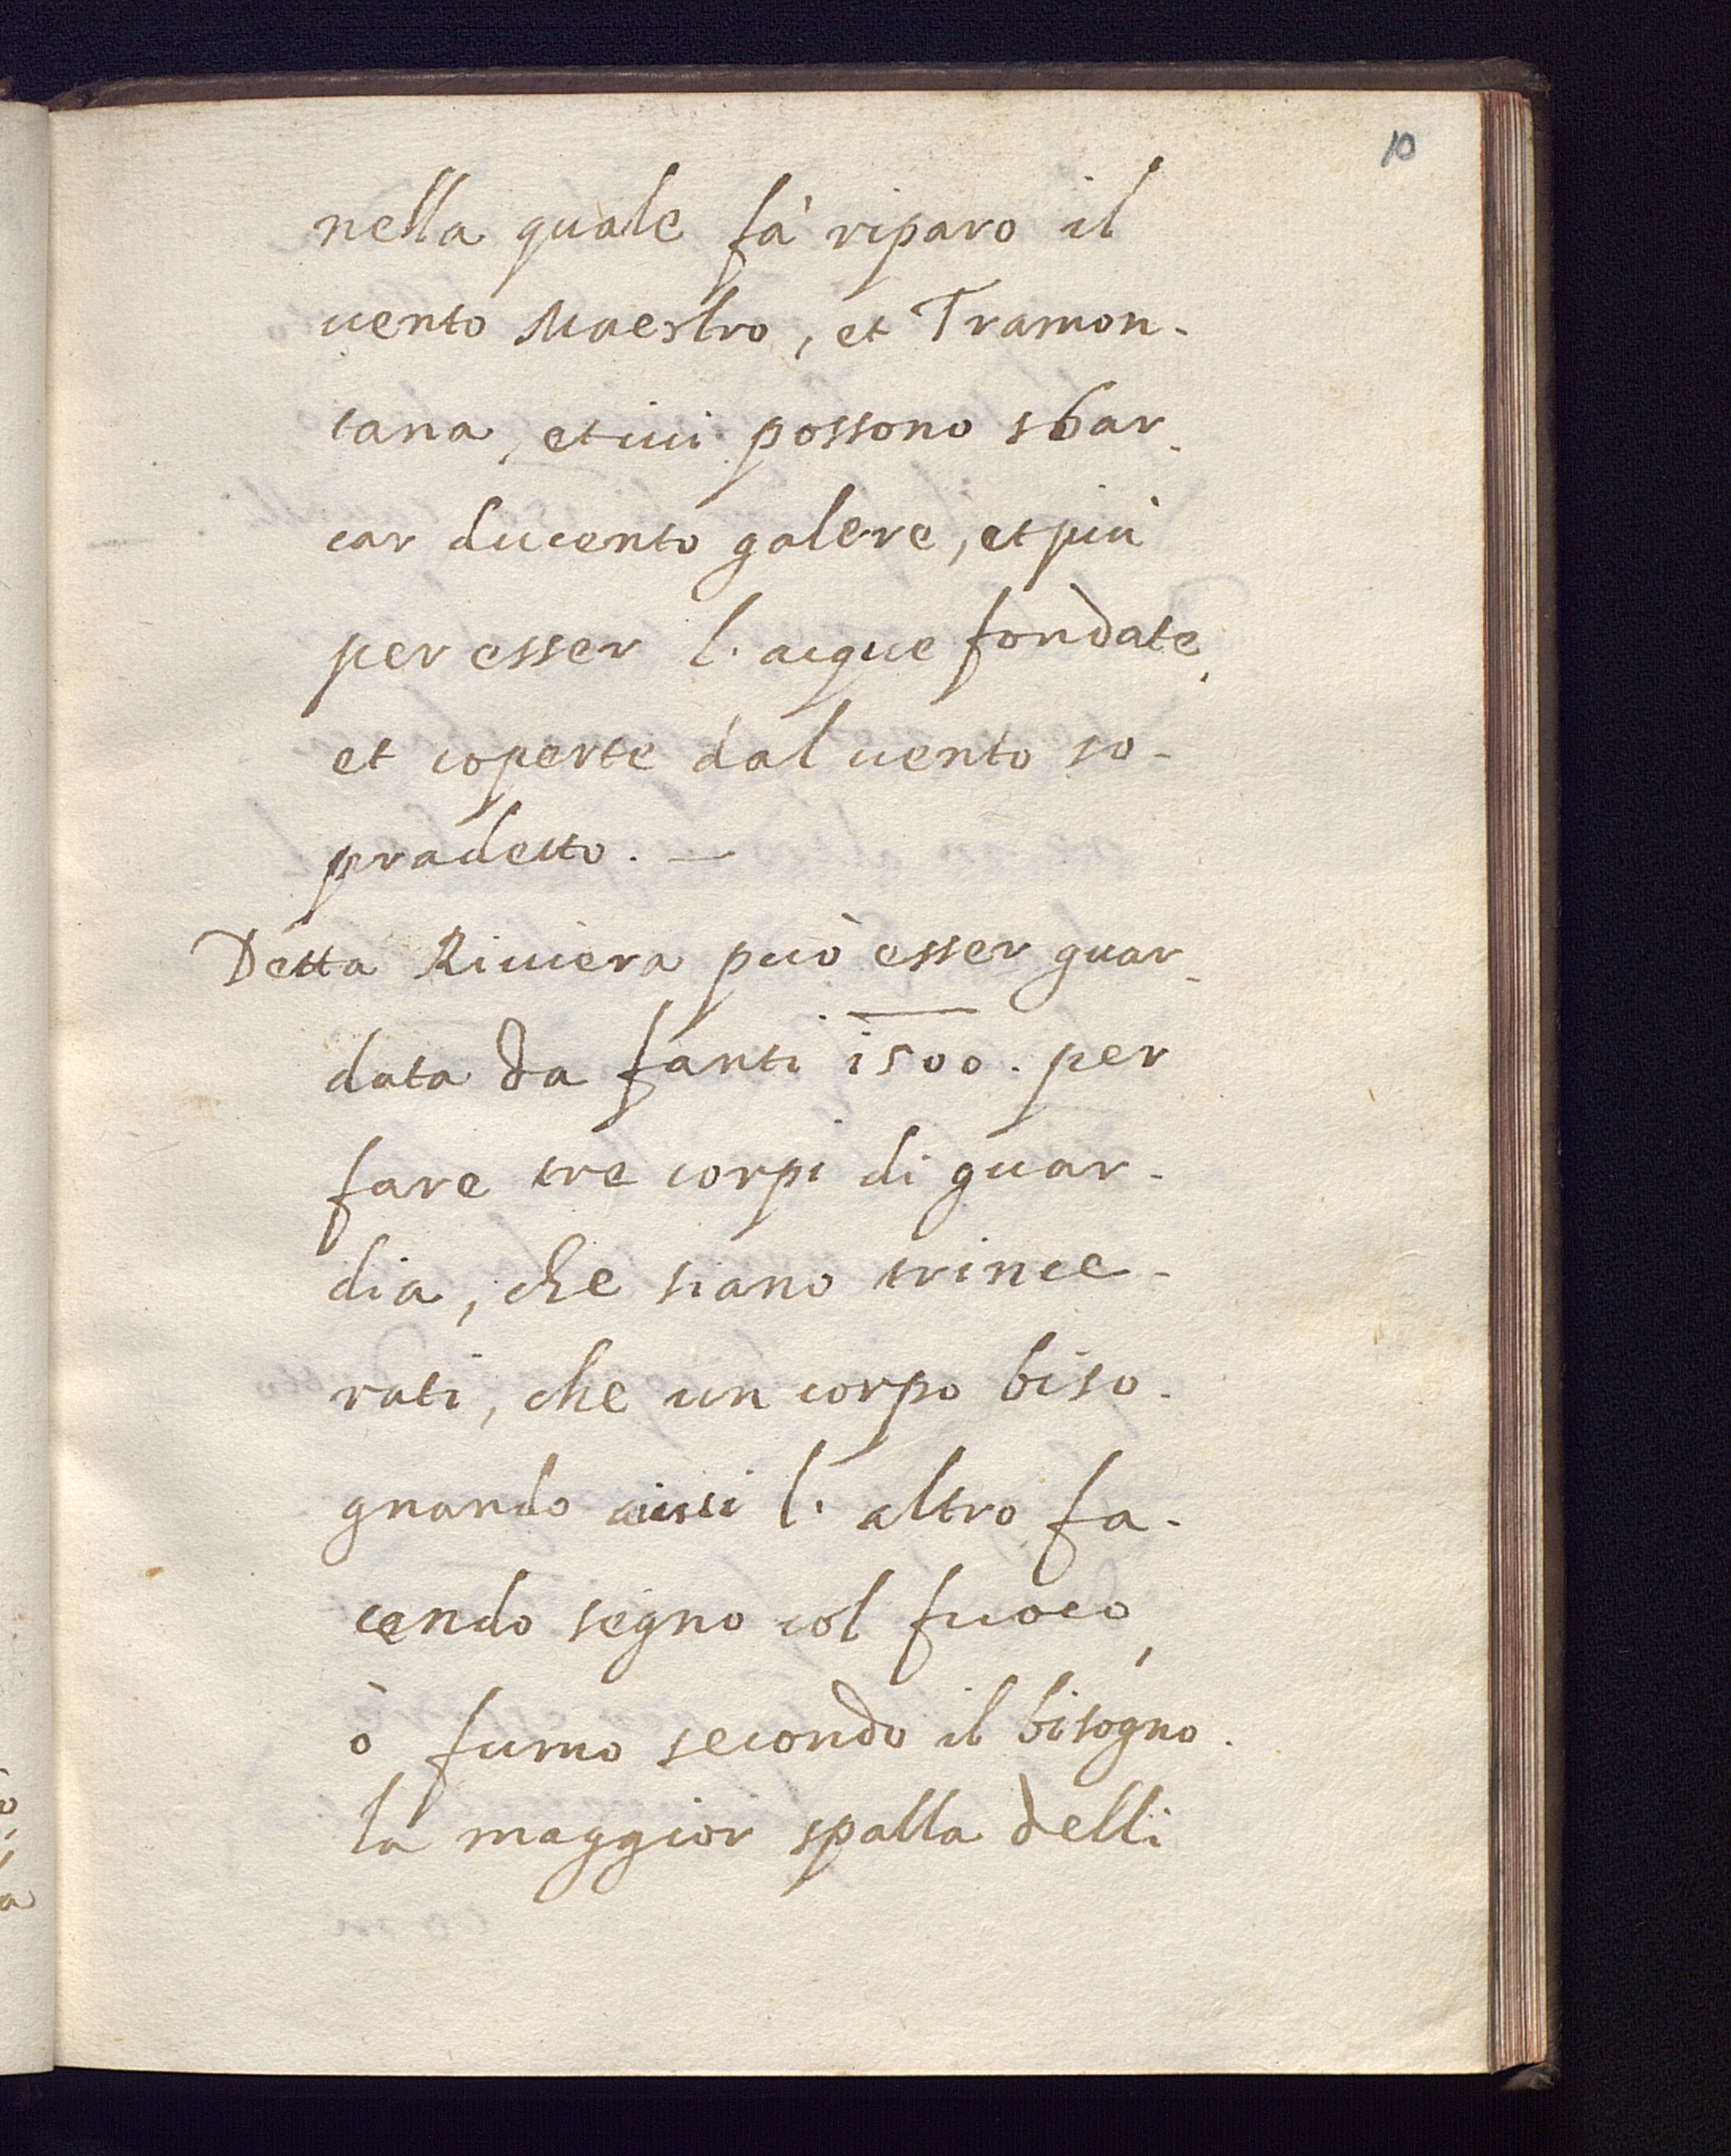 10
nella quale fà riparo il
uento Maestro, et Tramon-
tana, et iui possono sbar-
car ducento galere, et più
per esser l'acque fondate,
et coperte dal uento so-
pradetto. —
Detta Riuiera può esser guar-
data da fanti 1500. per
fare tre corpi di guar-
dia, che siano trince-
rati, che un corpo biso-
gnando auisi l'altro fa-
cendo segno col fuoco,
ò fumo secondo il bisogno.
la maggior spalla delli